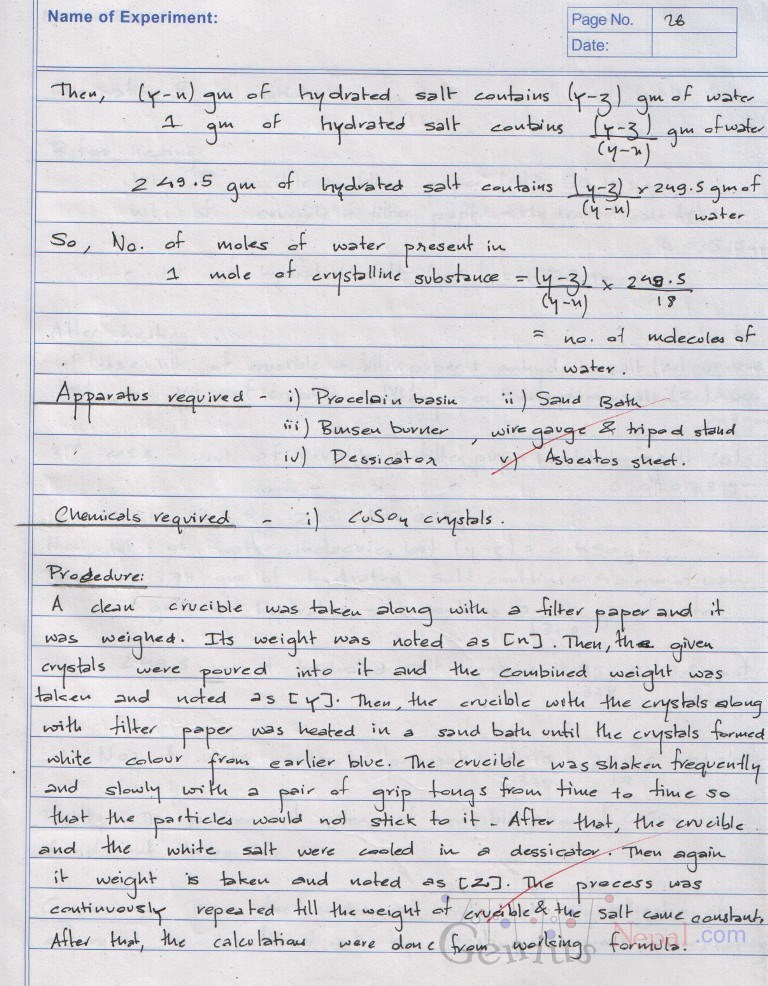 Name of Experiment:
Page No. 26
Date:
Then, (y-x) gm of hydrated salt contains (y-z) gm of water
1 gm of hydrated salt contains (y-z)/(y-x) gm of water
249.5 gm of hydrated salt contains (y-z)/(y-x) x 249.5 gm of
water
So, No. of moles of water present in
1 mole of crystalline substance = (y-z)/(y-x) × 249.5/18
= no. of molecules of
water.
Apparatus required - i) Procelain basin ii) Sand Bath
iii) Bunsen burner , wire gauge & tripod stand
iv) Dessicator v) Asbestos sheet.
Chemicals required - i) CuSO4 crystals.
Procedure:
A clean crucible was taken along with a filter paper and it
was weighed. Its weight was noted as [x]. Then, the given
crystals were poured into it and the combined weight was
taken and noted as [y]. Then, the crucible with the crystals along
with filter paper was heated in a sand bath until the crystals formed
white colour from earlier blue. The crucible was shaken frequently
and slowly with a pair of grip tongs from time to time so
that the particles would not stick to it. After that, the crucible
and the white salt were cooled in a dessicator. Then again
it weight is taken and noted as [z]. The process was
continuously repeated till the weight of crucible & the salt came constant.
After that, the calculations were done from working formula.
Genius Nepal.com